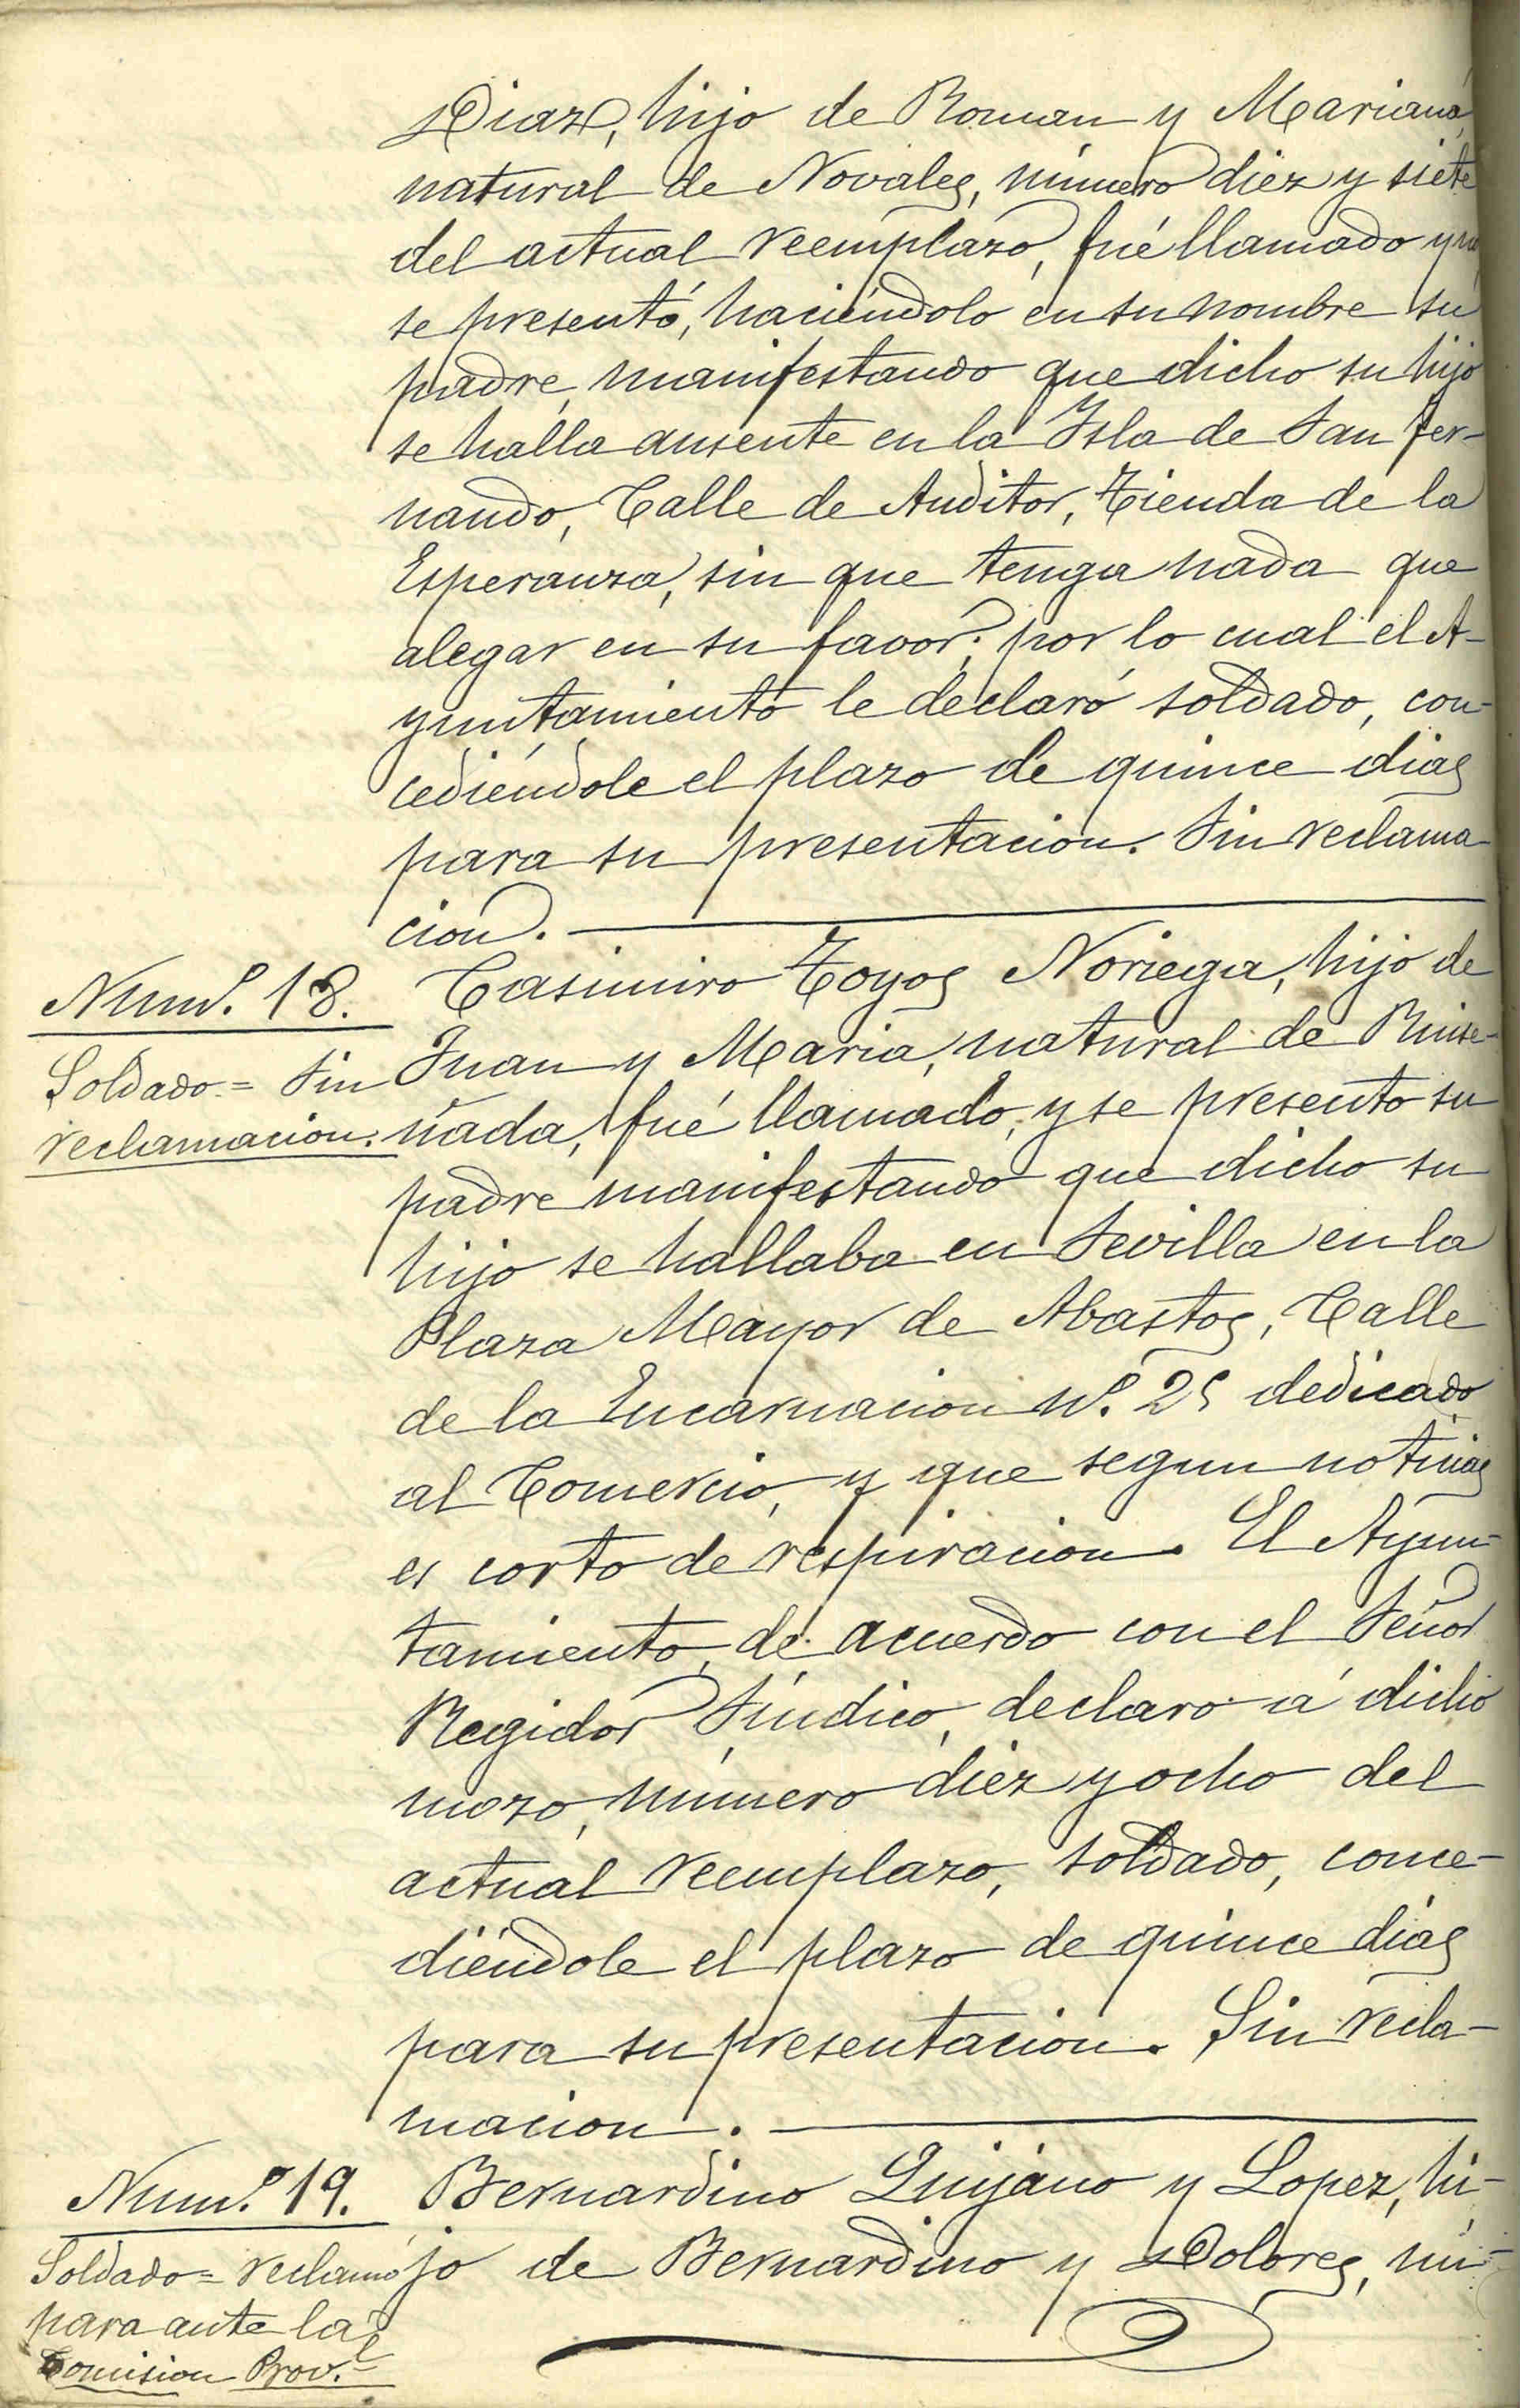 Diaz, hijo de Roman y Mariana,
natural de Novales, número diez y siete
del actual reemplazo, fué llamado y no
se presentó, haciéndolo en su nombre su
padre, manifestando que dicho su hijo
se halla ausente en la Isla de San Fer-
nando, Calle de Auditor, Tienda de la
Esperanza, sin que tenga nada que
alegar en su favor; por lo cual el A-
yuntamiento le declaró soldado, con-
cediéndole el plazo de quince dias
para su presentacion. Sin reclama-
cion.
Num.º 18.
Soldado = Sin
reclamacion.
Casimiro Toyos Noriega, hijo de
Juan y Maria, natural de Ruise-
ñada, fué llamado, y se presento su
padre manifestando que dicho su
hijo se hallaba en Sevilla en la
Plaza Mayor de Abastos, Calle
de la Encarnacion nº. 25 dedicado
al Comercio, y que segun noticias
es corto de respiracion. El Ayun-
tamiento, de acuerdo con el Señor
Regidor Síndico, declaro á dicho
mozo, número diez y ocho del
actual reemplazo, soldado, conce-
diéndole el plazo de quince dias
para su presentacion. Sin recla-
macion.
Num.º 19.
Soldado = reclamó
para ante la
Comision Prov.l
Bernardino Quijano y Lopez, hi-
jo de Bernardino y Dolores, nú-